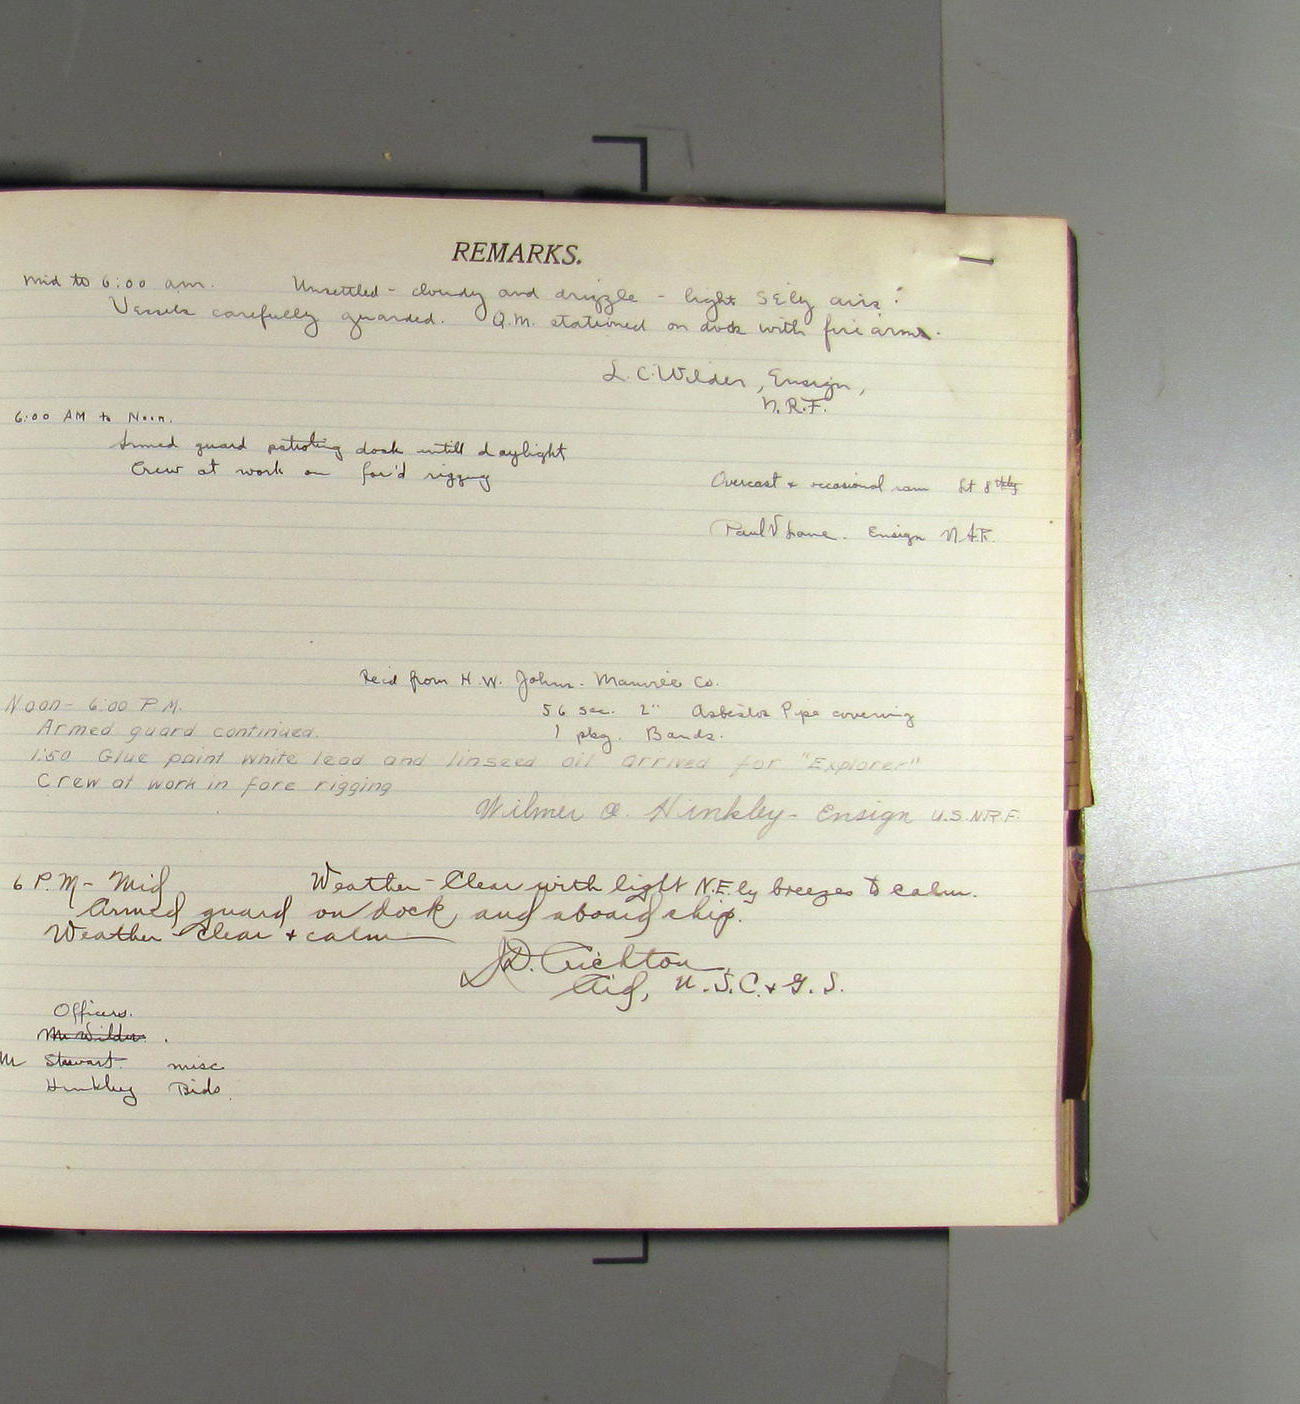 REMARKS.
Mid to 6:00 am. Unsettled - cloudy and drizzle - light SEly airs.
Vessels carefully guarded. Q.M. stationed on dock with fire arms.
L. C. Wilder, Ensign,
N.R.F.
6:00 AM to Noon.
Armed guard patroling dock untill daylight
Crew at work on for'd rigging
Overcast & occasional rain Lt
Paul V Lane. Ensign
Rec'd from H. W. Johns-Manville Co.
Noon - 6:00 P.M.
56 sec. 2" Asbestos Pipe covering
Armed guard continued.
1 pkg. Bands.
1:50 Glue paint white lead and linseed oil arrived for "Explorer"
Crew at work in fore rigging
Wilmer O. Hinkley - Ensign U.S.N.R.F.
6 P.M - Mid Weather - Clear with light N.E.ly breezes to calm.
Armed guard on dock, and aboard ship.
Weather - Clear & calm
J.D. Crichton,
Aid, U.S.C.& G.S.
Officers.
Mr Wilder.
Mr Stewart misc
Hinkley Bids.